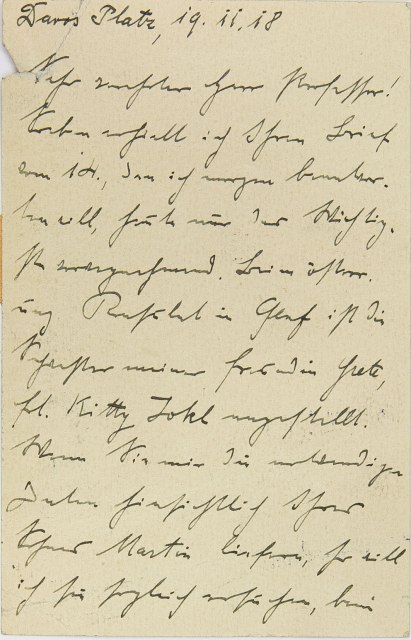 Davos Platz, 19. 11. 18
Sehr verehrter Herr Professor!
Soeben erhielt ich Ihren Brief
vom 14., den ich morgen beantwor-
ten will, heute nur das Wichtig-
ste vorwegnehmend. Beim österr.
ung. Konsulat in Genf ist die
Schwester meiner Freundin Grete,
Frl. Kitty Jokl angestellt.
Wenn Sie mir die notwendigen
Daten hinsichtlich Ihres
Sohnes Martin liefern, so will
ich sie sogleich ersuchen, beim